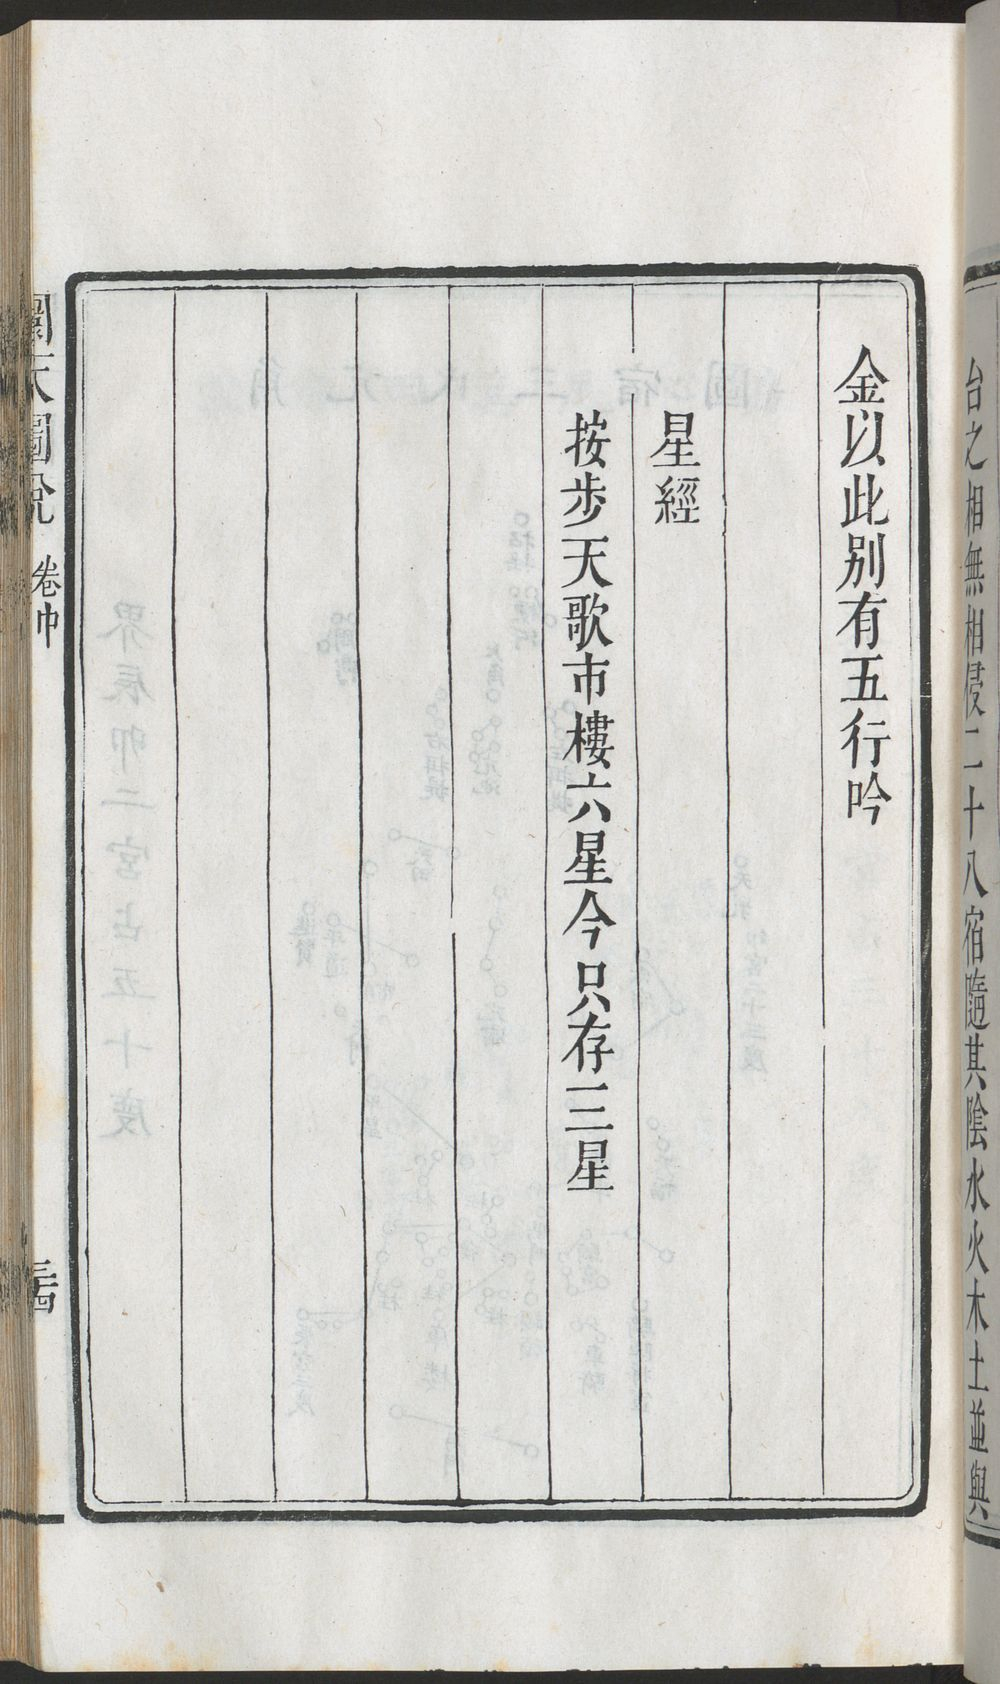 台之相無相侵二十八宿隨其陰水火木土並與
金以此別有五行吟
星經
按步天歌市樓六星今只存三星
圜天圖說 卷中
三十四